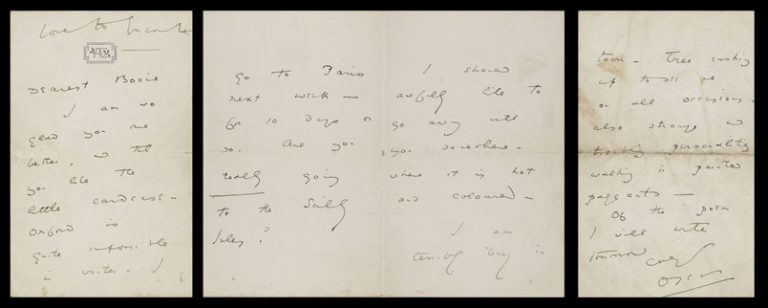 Love to Encombe
Dearest Bosie
I am so
glad you are
better, and that
you like the
little cardcase –
Oxford is
quite impossible
in winter. I
go to Paris
next week –
for 10 days or
so. Are you
really going
to the Scilly
Isles?
I should
awfully like to
go away with
you somewhere –
where it is hot
and coloured –
I am
terribly busy in
town – Tree rushing
up to see me
on all occasions –
also strange and
troubling personalities
walking in painted
pageants –
Of the poem
I will write
tomorrow.
Ever
Oscar